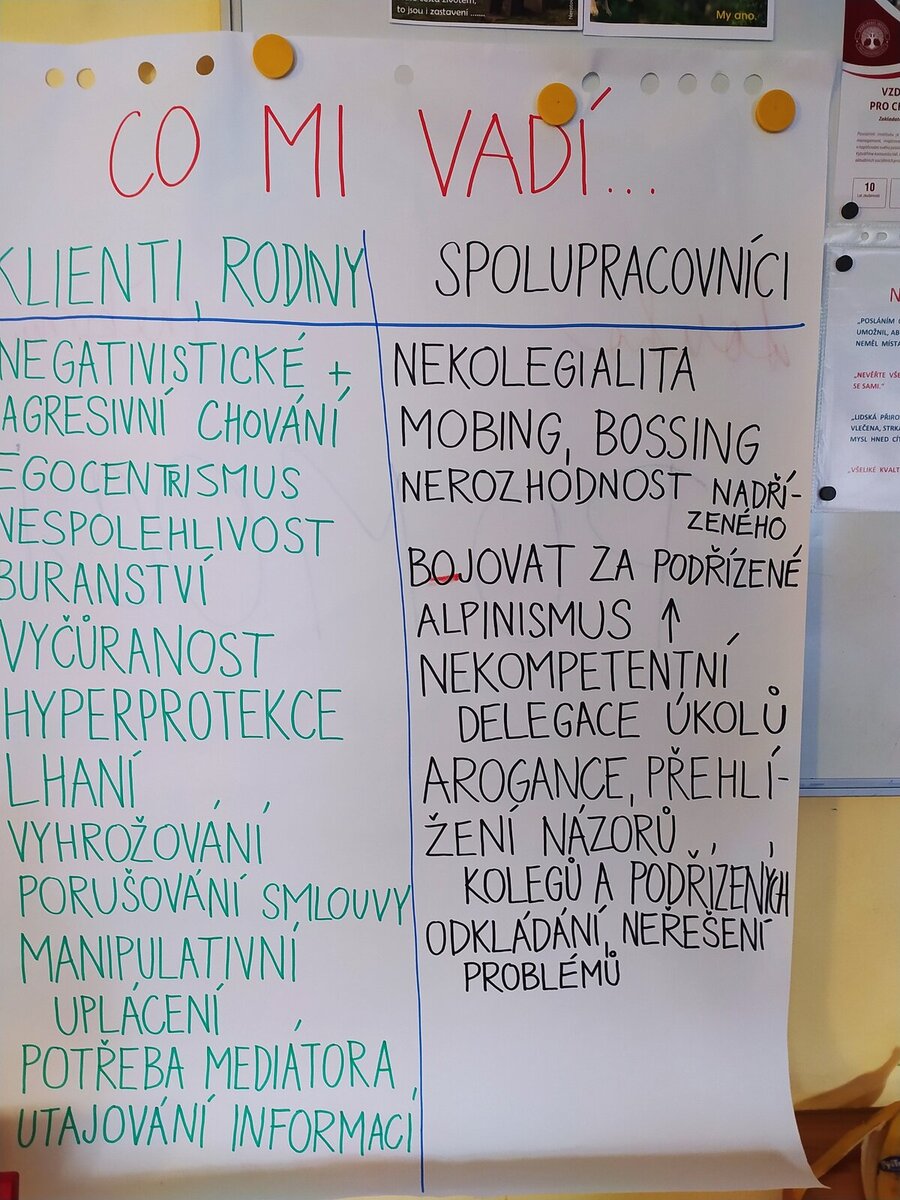 to jsou i zastavení ......
My ano.
CO MI VADÍ...
KLIENTI, RODINY
NEGATIVISTICKÉ +
AGRESIVNÍ CHOVÁNÍ
EGOCENTRISMUS
NESPOLEHLIVOST
BURANSTVÍ
VYČŮRANOST
HYPERPROTEKCE
LHANÍ
VYHROŽOVÁNÍ
PORUŠOVÁNÍ SMLOUVY
MANIPULATIVNÍ
UPLÁCENÍ
POTŘEBA MEDIÁTORA
UTAJOVÁNÍ INFORMACÍ
SPOLUPRACOVNÍCI
NEKOLEGIALITA
MOBING, BOSSING
NEROZHODNOST NADŘÍ-
ZENÉHO
BOJOVAT ZA PODŘÍZENÉ
ALPINISMUS ↑
NEKOMPETENTNÍ
DELEGACE ÚKOLŮ
AROGANCE, PŘEHLÍ-
ŽENÍ NÁZORŮ
KOLEGŮ A PODŘÍZENÝCH
ODKLÁDÁNÍ, NEŘEŠENÍ
PROBLÉMŮ
VZD
PRO CE
10
N
„POSLÁNÍM
UMOŽNIL, AB
NEMĚL MÍSTA
„NEVĚŘTE VŠE
SE SAMI.“
„LIDSKÁ PŘIRO
VLEČENA, STRK
MYSL HNED CÍT
„VŠELIKÉ KVALT